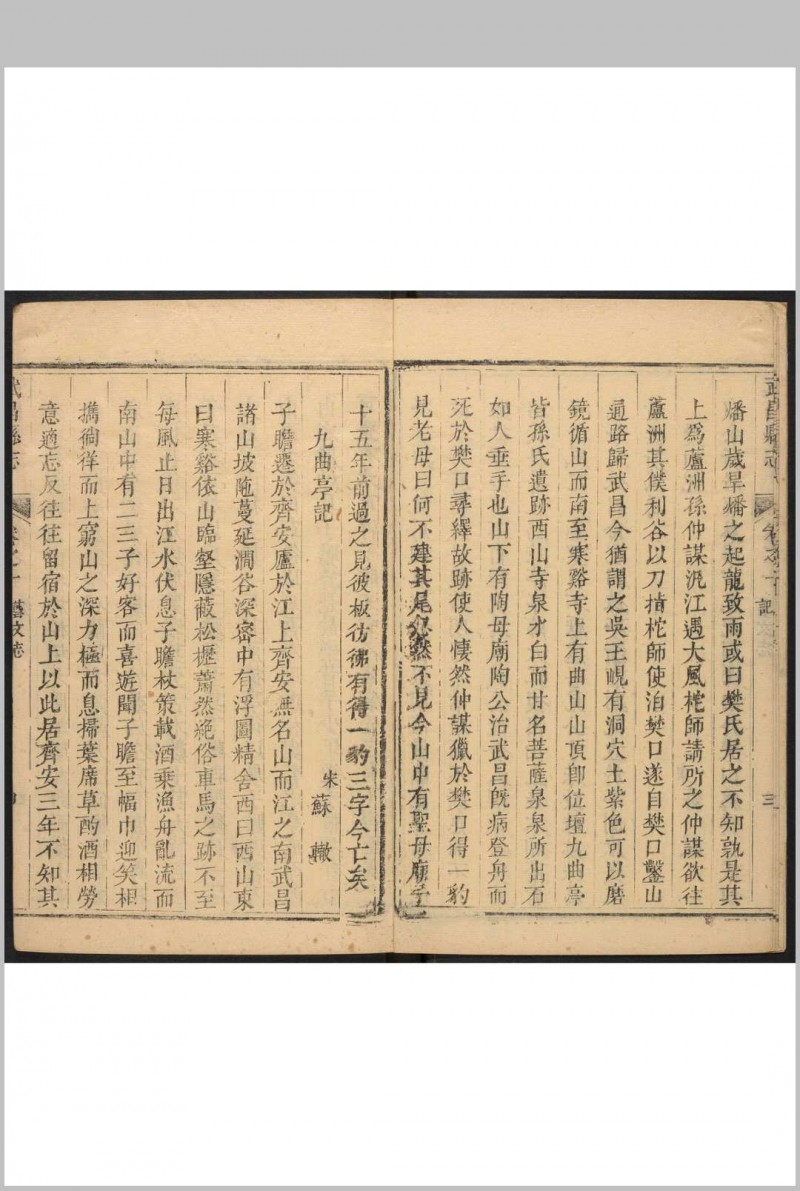 武昌縣志
記
三
燔山歲旱燔之起龍致雨或曰樊氏居之不知孰是其
上為蘆洲孫仲謀汎江遇大風柁師請所之仲謀欲往
蘆洲其僕利谷以刀擬柁師使泊樊口遂自樊口鑿山
通路歸武昌今猶謂之吳王峴有洞穴土紫色可以磨
鏡循山而南至寒谿寺上有曲山山頂卽位壇九曲亭
皆孫氏遺跡西山寺泉水白而甘名菩薩泉泉所出石
如人垂手也山下有陶母廟陶公治武昌旣病登舟而
死於樊口尋繹故跡使人悽然仲謀獵於樊口得一豹
見老母曰何不建其尾忽然不見今山中有聖母廟予
十五年前過之見彼板彷彿有得一豹三字今亡矣
九曲亭記
宋 蘇轍
子瞻遷於齊安廬於江上齊安無名山而江之南武昌
諸山坡陁蔓延澗谷深密中有浮圖精舍西曰西山東
曰寒谿依山臨壑隱蔽松櫪蕭然絕俗車馬之跡不至
每風止日出江水伏息子瞻杖策載酒乘漁舟亂流而
南山中有二三子好客而喜遊聞子瞻至幅巾迎笑相
攜徜徉而上窮山之深力極而息掃葉席草酌酒相勞
意適忘反往往留宿於山上以此居齊安三年不知其
武昌縣志
卷之十 藝文志